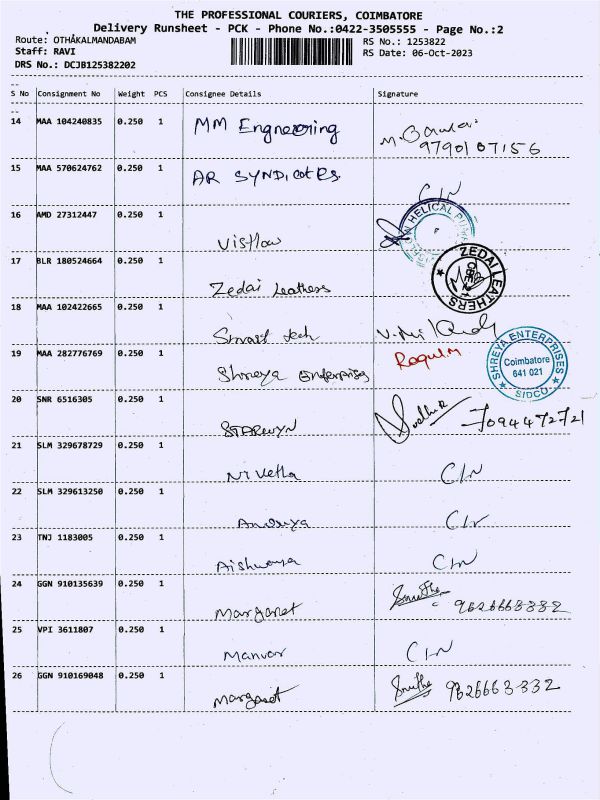 THE PROFESSIONAL COURIERS, COIMBATORE
Delivery Runsheet - PCK - Phone No.:0422-3505555 - Page No.:2
Route: OTHAKALMANDABAM
RS No.: 1253822
Staff: RAVI
RS Date: 06-Oct-2023
DRS No.: DCJB125382202
S No Consignment No Weight PCS Consignee Details Signature
14 MAA 104240835 0.250 1 MM Engneering
9790107156
15 MAA 570624762 0.250 1 AR SYNDICATES C/N
16 AMD 27312447 0.250 1 Visflow
17 BLR 180524664 0.250 1 Zedai Leathers ZEDAI LEATHERS
18 MAA 102422665 0.250 1 Smart tech
19 MAA 282776769 0.250 1 Shreya Enterprises SHREYA ENTERPRISES
Coimbatore
641 021
SIDCO
20 SNR 6516305 0.250 1 STARWYN 7094472721
21 SLM 329678729 0.250 1 Nivetha C/N
22 SLM 329613250 0.250 1 C/N
23 TNJ 1183005 0.250 1 Aishwarya C/N
24 GGN 910135639 0.250 1 Margaret
25 VPI 3611807 0.250 1 C/N
26 GGN 910169048 0.250 1 Margaret 9626663332